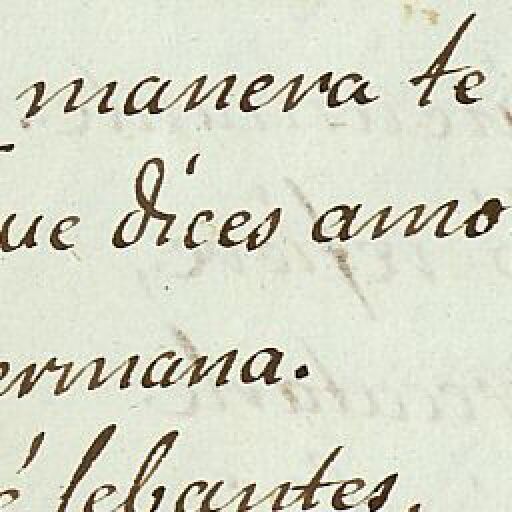 manera te
ue dices amo
ermana.
é lebantes.